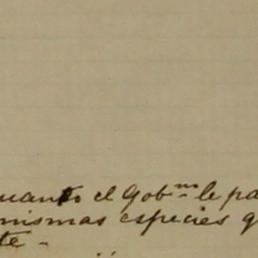 cuanto el Gob.no le pa
mismas especies q
te -